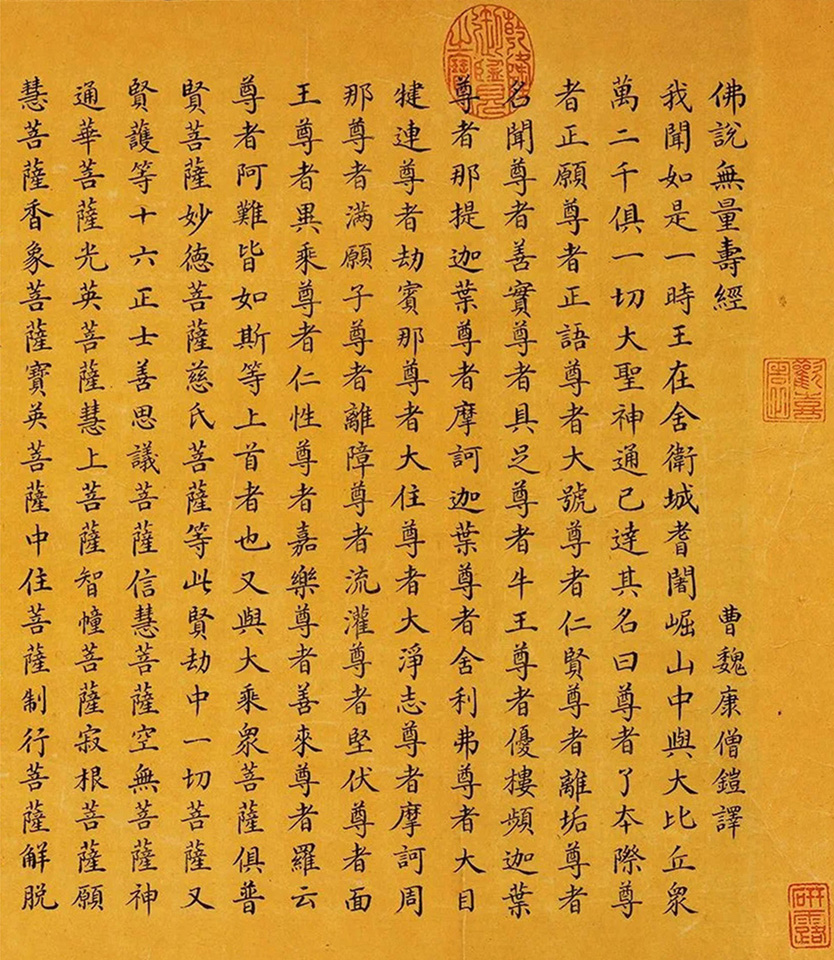 佛說無量壽經
曹魏康僧鎧譯
我聞如是一時王在舍衛城耆闍崛山中與大比丘眾
萬二千俱一切大聖神通已達其名曰尊者了本際尊
者正願尊者正語尊者大號尊者仁賢尊者離垢尊者
名聞尊者善實尊者具足尊者牛王尊者優樓頻迦葉
尊者那提迦葉尊者摩訶迦葉尊者舍利弗尊者大目
犍連尊者劫賓那尊者大住尊者大淨志尊者摩訶周
那尊者满願子尊者離障尊者流灌尊者堅伏尊者面
王尊者異乘尊者仁性尊者嘉樂尊者善來尊者羅云
尊者阿難皆如斯等上首者也又與大乘眾菩薩俱普
賢菩薩妙德菩薩慈氏菩薩等此賢劫中一切菩薩又
賢護等十六正士善思議菩薩信慧菩薩空無菩薩神
通華菩薩光英菩薩慧上菩薩智幢菩薩寂根菩薩願
慧菩薩香象菩薩寶英菩薩中住菩薩制行菩薩解脫
研露